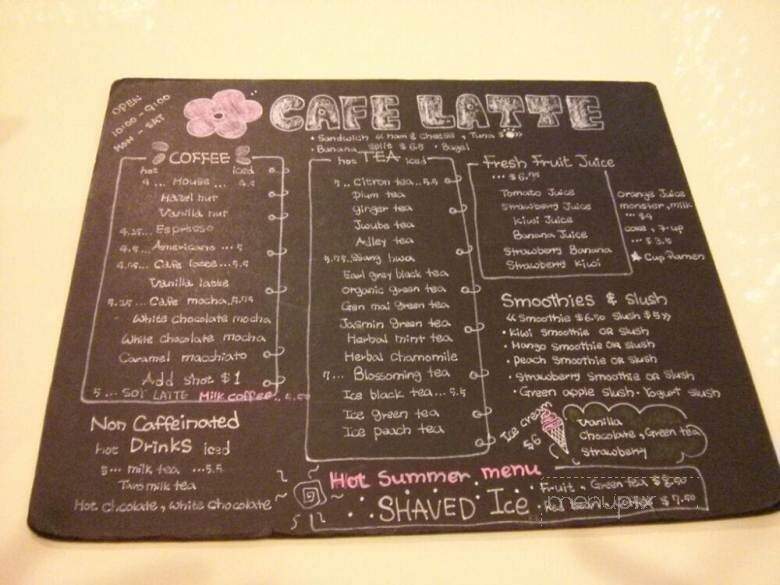 OPEN
10:00 - 9:00
MON - SAT
CAFE LATTE
• Sandwich << ham & cheese, Tuna $
• Banana split $ 6.5 • Bagel
COFFEE
hot iced
4 ... House ...
Hazel nut
Vanilla nut
4.25... Espresso
4.5... Americano ... 5
Cafe latte ...5.5
Vanilla latte
5.25... Cafe mocha..5.75
White chocolate mocha
White chocolate mocha
Caramel macchiato
Add shot $ 1
5 ... SOY LATTE Milk coffee..
Non Caffeinated
hot Drinks iced
5... milk tea ...5.5
Taro milk tea
Hot chcolate, White Chocolate
hot TEA iced
5... Citron tea...5.5
Plum tea
ginger tea
Jujube tea
Adley tea
5.75..Ssang hwa
Earl grey black tea
Organic green tea
Gen mai green tea
Jasmin green tea
Herbal mint tea
Herbal chamomile
7... Blossoming tea
Ice black tea... 5.5
Ice green tea
Ice peach tea
Fresh Fruit Juice
... $ 6.75
Tomato Juice
Strawberry Juice
Kiwi Juice
Banana Juice
Strawberry Banana
Strawberry Kiwi
Orange Juice
monster, milk
... $4
coke, 7-up
... $ 3.5
Cup Ramen
Smoothies & slush
<< Smoothie $6.50 slush $5 >>
• Kiwi smoothie OR slush
• Mango smoothie OR slush
• Peach smoothie OR slush
• Strawberry smoothie OR slush
• Green apple slush • Yogurt slush
Ice cream
$6
Vanilla
Chocolate, Green tea
Strawberry
Hot summer menu
SHAVED Ice
• Fruit, Green tea $
Red bean $ 7.50
menupix